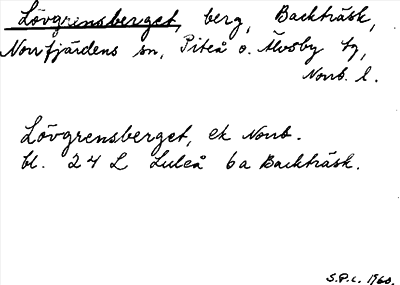 Lövgrensberget, berg, Backträsk,
Norrfjärdens sn, Piteå o. Älvsby tg,
Norrb. l.
Lövgrensberget, ek Norrb.
bl. 24 L Luleå 6a Backträsk.
S.P.c. 1960.